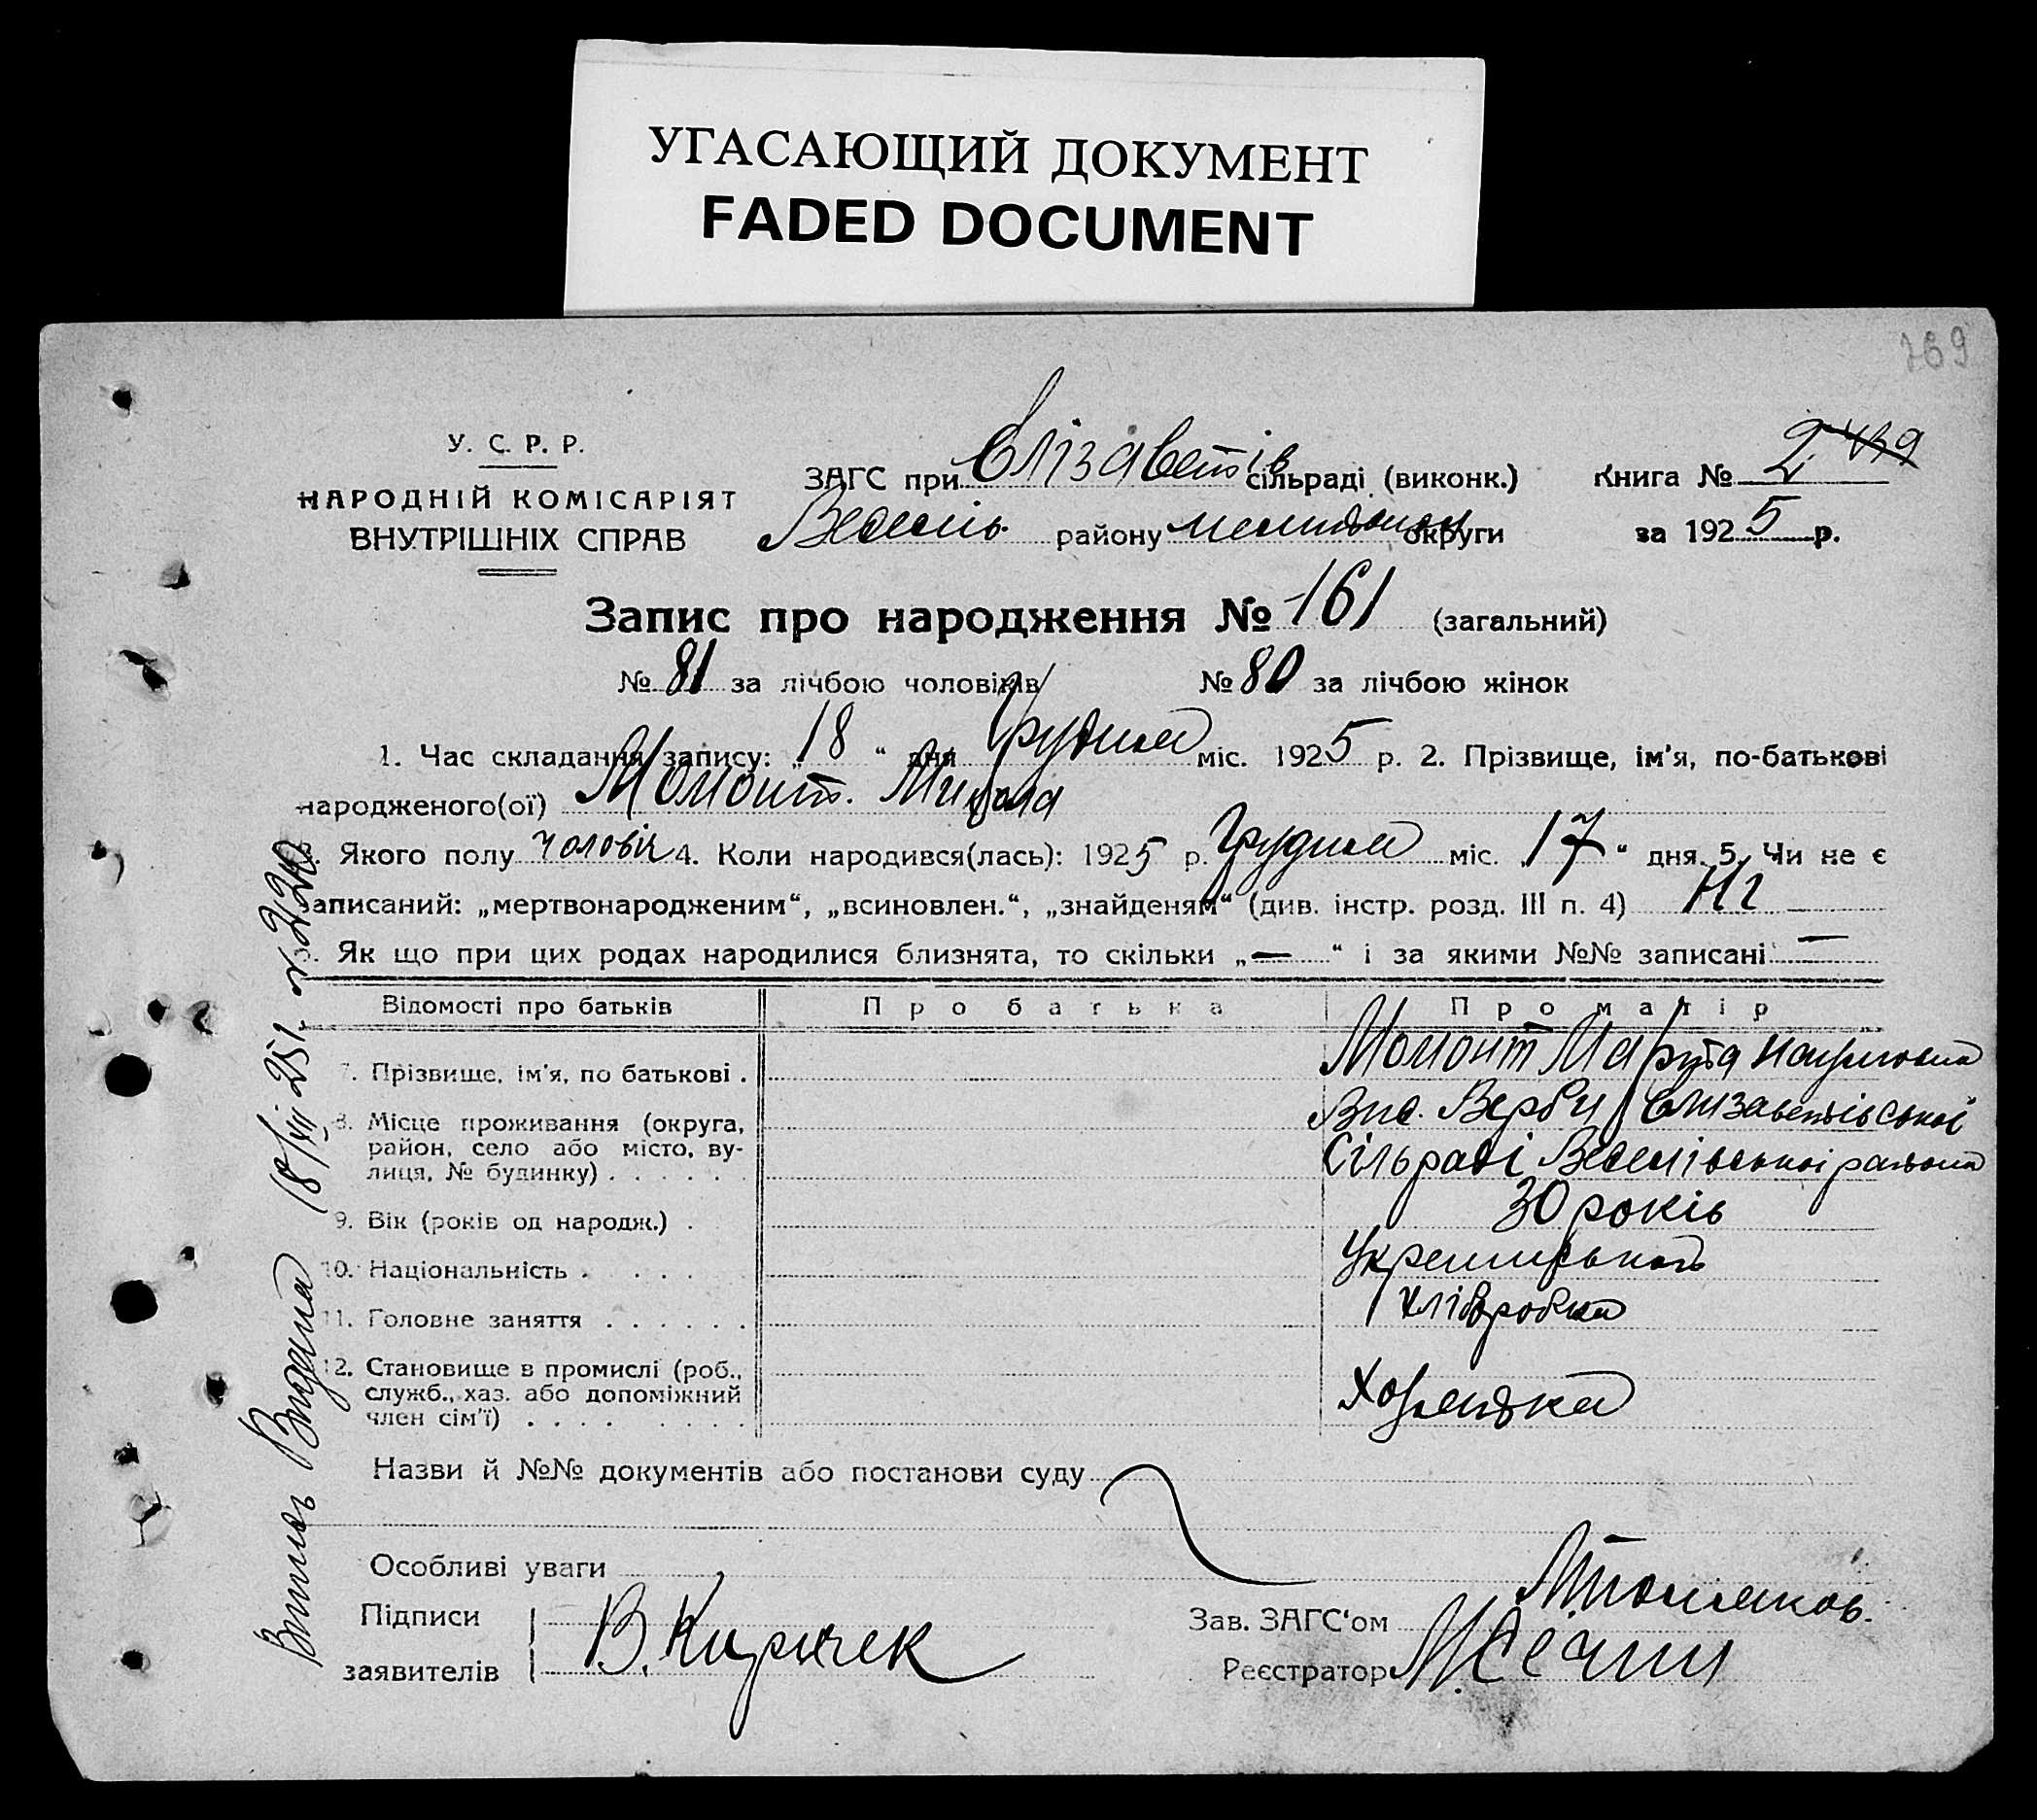 УГАСАЮЩИЙ ДОКУМЕНТ
FADED DOCUMENT
769
У. С. Р. Р.
НАРОДНІЙ КОМІСАРІЯТ
ВНУТРІШНІХ СПРАВ
ЗАГС при Єлізаветів сільраді (виконк.)
Веселів. району мелитопол округи
Книга № 2 439
за 1925 р.
Запис про народження № 161 (загальний)
№ 81 за лічбою чоловіків № 80 за лічбою жінок
1. Час складання запису: „18“ дня Грудня міс. 1925 р. 2. Прізвище, ім'я, по-батькові
народженого(ої) Момонт. Микола
3. Якого полу чоловіч 4. Коли народився(лась): 1925 р. Грудня міс. „17“ дня. 5. Чи не є
записаний: „мертвонародженим“, „всиновлен.“, „знайденям“ (див. інстр. розд. III п. 4) Ні
6. Як що при цих родах народилися близнята, то скільки „—“ і за якими №№ записані —
Відомості про батьків Про батька Про матір
7. Прізвище, ім'я, по батькові . Момонт Марта Наумовна
8. Місце проживання (округа, район, село або місто, вулиця, № будинку) . . . . . .
Вис. Верби Єлизаветівської
Сільраді Веселівської района
9. Вік (років од народж.) . 30 років
10. Національність . . . . . Українська
11. Головне заняття . . . . . . хліборобка
12. Становище в промислі (роб., служб., хаз. або допоміжний член сім'ї) . . . . . . . . Хозяйка
Назви й №№ документів або постанови суду
Особливі уваги
Підписи
заявителів
В. Киричек
Зав. ЗАГС'ом
Реєстратор
Витяг Видана 18/XII 25 г. № 220